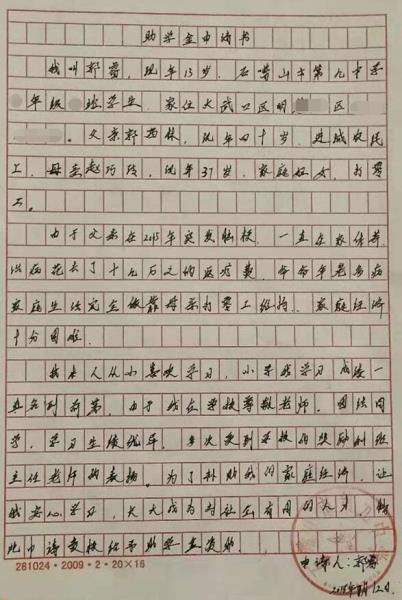 助学金申请书
我叫郭蓉，现年13岁。石嘴山市第九中学
年级 班学生。家住大武口区明 区
。父亲郭西林，现年四十岁，进城农民
工，母亲赵巧玲，现年37岁，家庭妇女，打零
工。
由于父亲在2015年突发脑梗，一直在家休养，
治病花去了十几万元的医疗费，爷爷年老多病
家庭生活完全依靠母亲打零工维持，家庭经济
十分困难。
我本人从小喜欢学习，小学我学习成绩一
直名列前茅，由于我在学校尊敬老师，团结同
学，学习生绩优异，多次受到学校的奖励和班
主任老师的表扬。为了补助我的家庭经济，让
我安心学习，长大成为对社会有用的人才，特
此申请贵校给予助学金资助。
申请人：郭蓉
12日
281024・2009・2・20×16